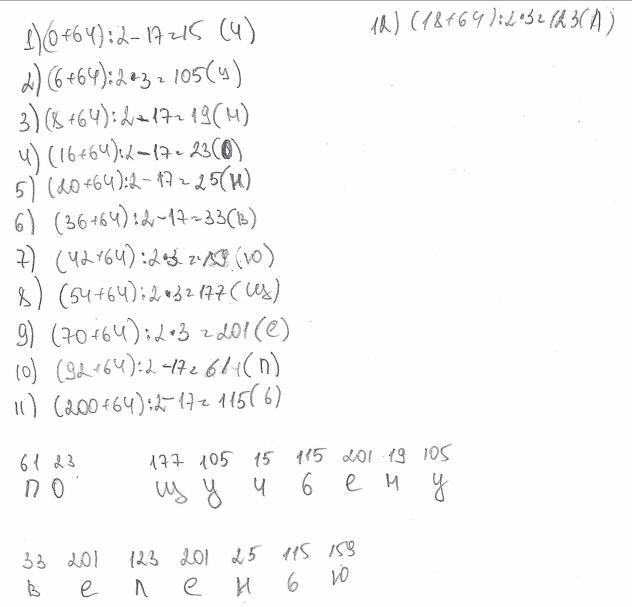 1) (0+64):2-17=15 (ч)
2) (6+64):2·3=105(у)
3) (8+64):2-17=19(м)
4) (16+64):2-17=23(о)
5) (20+64):2-17=25(н)
6) (36+64):2-17=33(в)
7) (42+64):2·3=159(ю)
8) (54+64):2·3=177(щ)
9) (70+64):2·3=201(е)
10) (92+64):2-17=61(п)
11) (200+64):2-17=115(ь)
12) (18+64):2·3=123(л)
61 23 177 105 15 115 201 19 105
п о щ у ч ь е м у
33 201 123 201 25 115 159
в е л е н ь ю